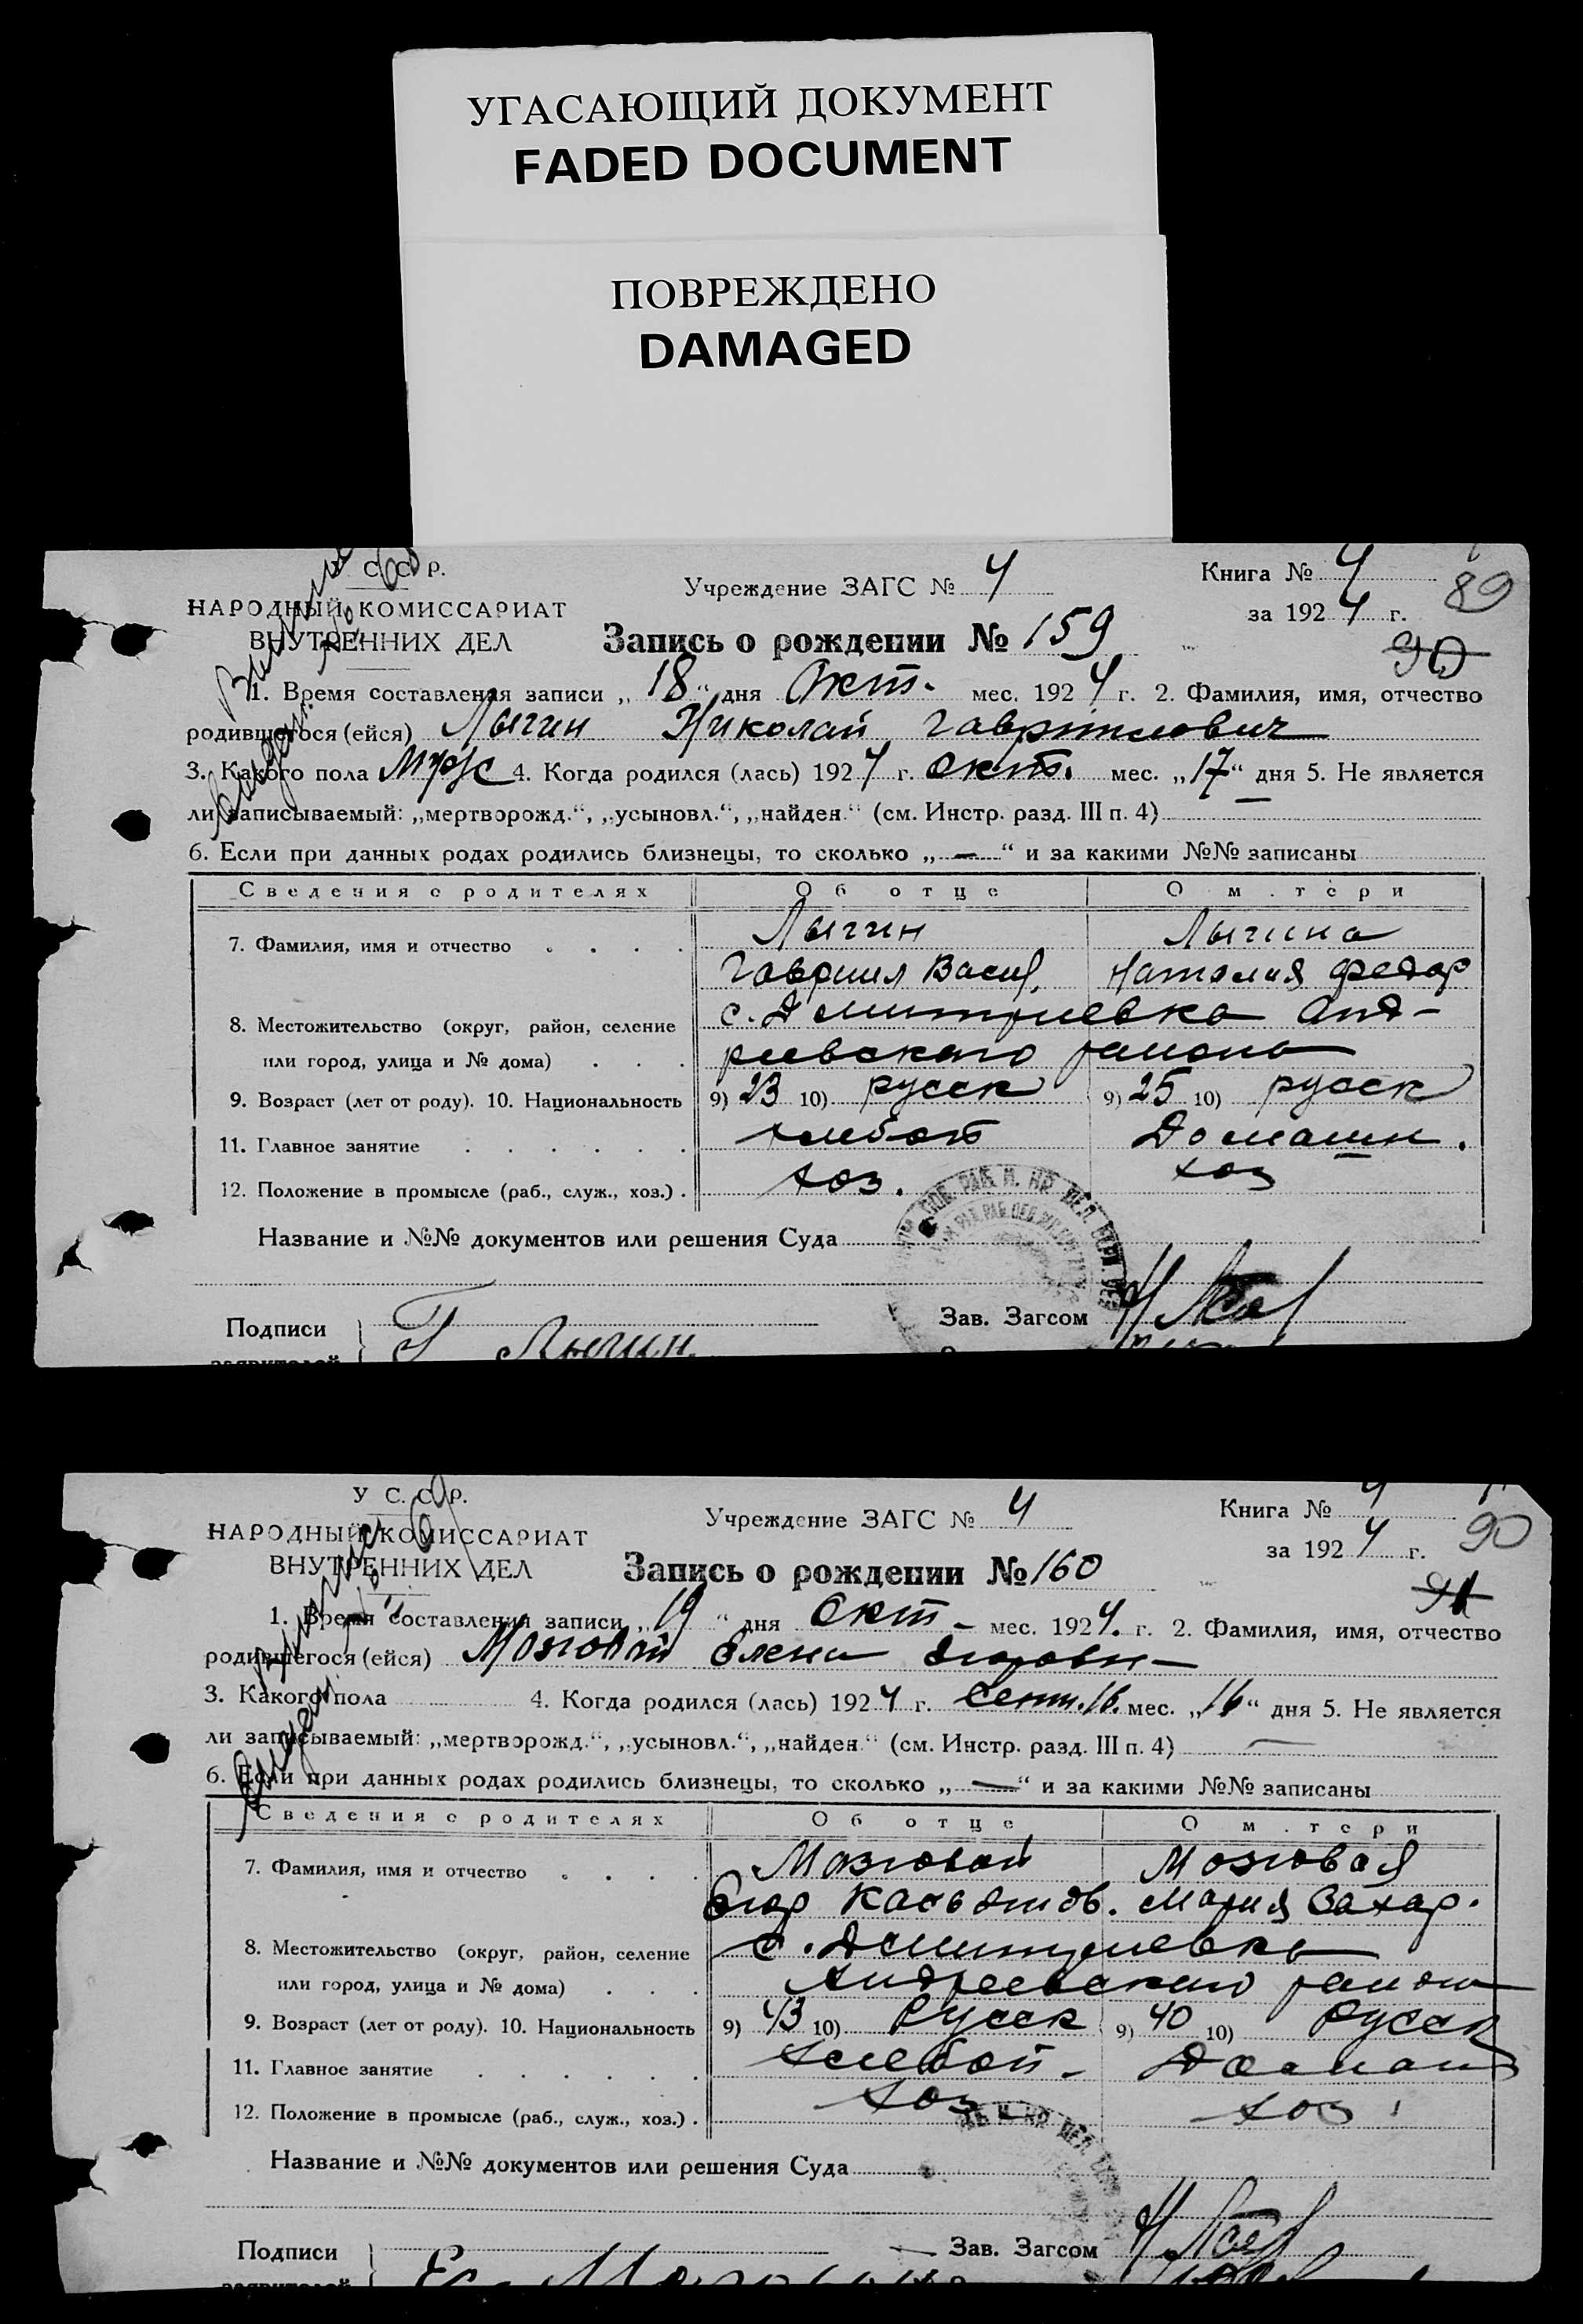 УГАСАЮЩИЙ ДОКУМЕНТ
FADED DOCUMENT
ПОВРЕЖДЕНО
DAMAGED
С. С. Р.
НАРОДНЫЙ КОМИССАРИАТ
ВНУТРЕННИХ ДЕЛ
Учреждение ЗАГС № 4
Книга № 4
за 1924 г.
89
90
Запись о рождении № 159
1. Время составления записи „18“ дня Окт. мес. 1924 г. 2. Фамилия, имя, отчество
родившегося (ейся) Лыгин Николай Гаврилович
3. Какого пола Муж 4. Когда родился (лась) 1924 г. окт. мес. „17“ дня 5. Не является
ли записываемый: „мертворожд.“, „усыновл.“, „найден.“ (см. Инстр. разд. III п. 4) —
6. Если при данных родах родились близнецы, то сколько „—“ и за какими №№ записаны
Сведения о родителях Об отце О м.тери
7. Фамилия, имя и отчество Лыгин Лыгина
Гавриил Васил. Наталия Федор
8. Местожительство (округ, район, селение с. Дмитриевка Анд-
или город, улица и № дома) реевского района
9. Возраст (лет от роду). 10. Национальность 9) 23 10) русск 9) 25 10) русск
11. Главное занятие хлебоп Домашн.
12. Положение в промысле (раб., служ., хоз.). хоз. хоз
Название и №№ документов или решения Суда
Подписи Г Лыгин. Зав. Загсом
заявителей
У С. С. Р.
НАРОДНЫЙ КОМИССАРИАТ
ВНУТРЕННИХ ДЕЛ
Учреждение ЗАГС № 4
Книга № 4
за 1924 г.
90
91
Запись о рождении № 160
1. Время составления записи „19“ дня Окт- мес. 1924. г. 2. Фамилия, имя, отчество
родившегося (ейся) Мозговой Елена Егоровн-
3. Какого пола 4. Когда родился (лась) 1924 г. Сент. 16. мес. „16“ дня 5. Не является
ли записываемый: „мертворожд.“, „усыновл.“, „найден.“ (см. Инстр. разд. III п. 4) —
6. Если при данных родах родились близнецы, то сколько „—“ и за какими №№ записаны
Сведения о родителях Об отце О м.тери
7. Фамилия, имя и отчество Мозговой Мозговая
Егор Касьянов. Мария Захар.
8. Местожительство (округ, район, селение с. Дмитриевка
или город, улица и № дома) Андреевского района
9. Возраст (лет от роду). 10. Национальность 9) 43 10) Русск 9) 40 10) Русск
11. Главное занятие хлебоп- Домашн
12. Положение в промысле (раб., служ., хоз.). хоз хоз
Название и №№ документов или решения Суда
Подписи Зав. Загсом
заявителей